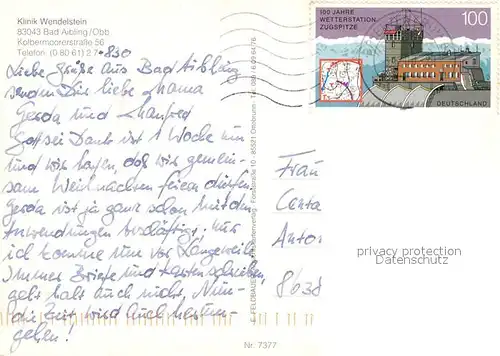 Klinik Wendelstein
83043 Bad Aibling/Obb.
Kolbermoorerstraße 56
Telefon (0 80 61) 2 7-830
100 JAHRE
WETTERSTATION
ZUGSPITZE
100
DEUTSCHLAND
Liebe Grüße aus Bad Aibling
senden Dir liebe Mama
Gerda und Manfred
Gottsei Dank ist 1 Woche um
und wir hoffen, daß wir gemein-
sam Weihnachten feiern dürfen.
Gerda ist ja ganz schön mit den
Anwendungen beschäftigt, nur
ich komme um vor Langeweile.
Immer Briefe und Karten schreiben
geht halt auch nicht. Nun
die Zeit wird auch herum-
gehen!
Frau
Anton
privacy protection
Datenschutz
8638
Nr. 7377